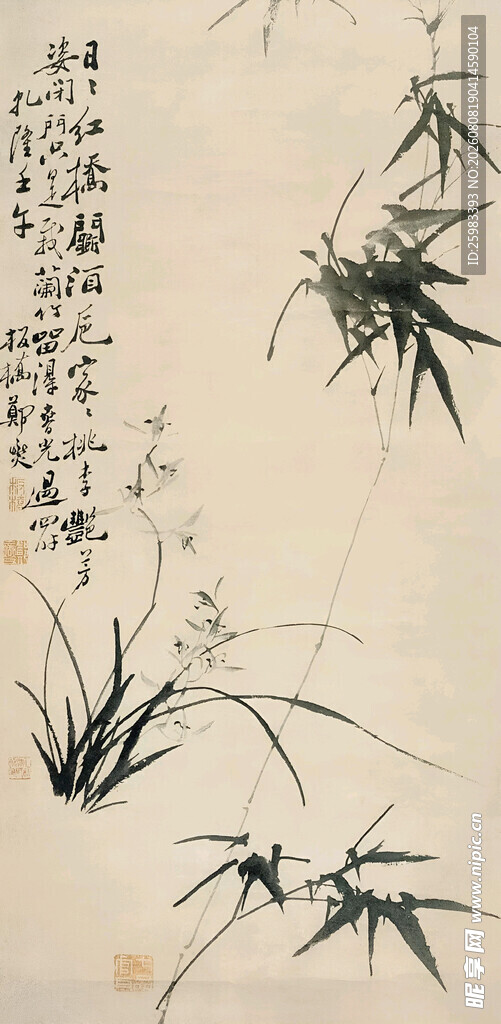 日〻紅橋鬭酒卮家〻桃李艷芳
姿閉門只是栽蘭竹留得春光過四時
乾隆壬午
板橋鄭燮
ID:25983393 NO:20260808190414590104
昵享网 www.nipic.cn